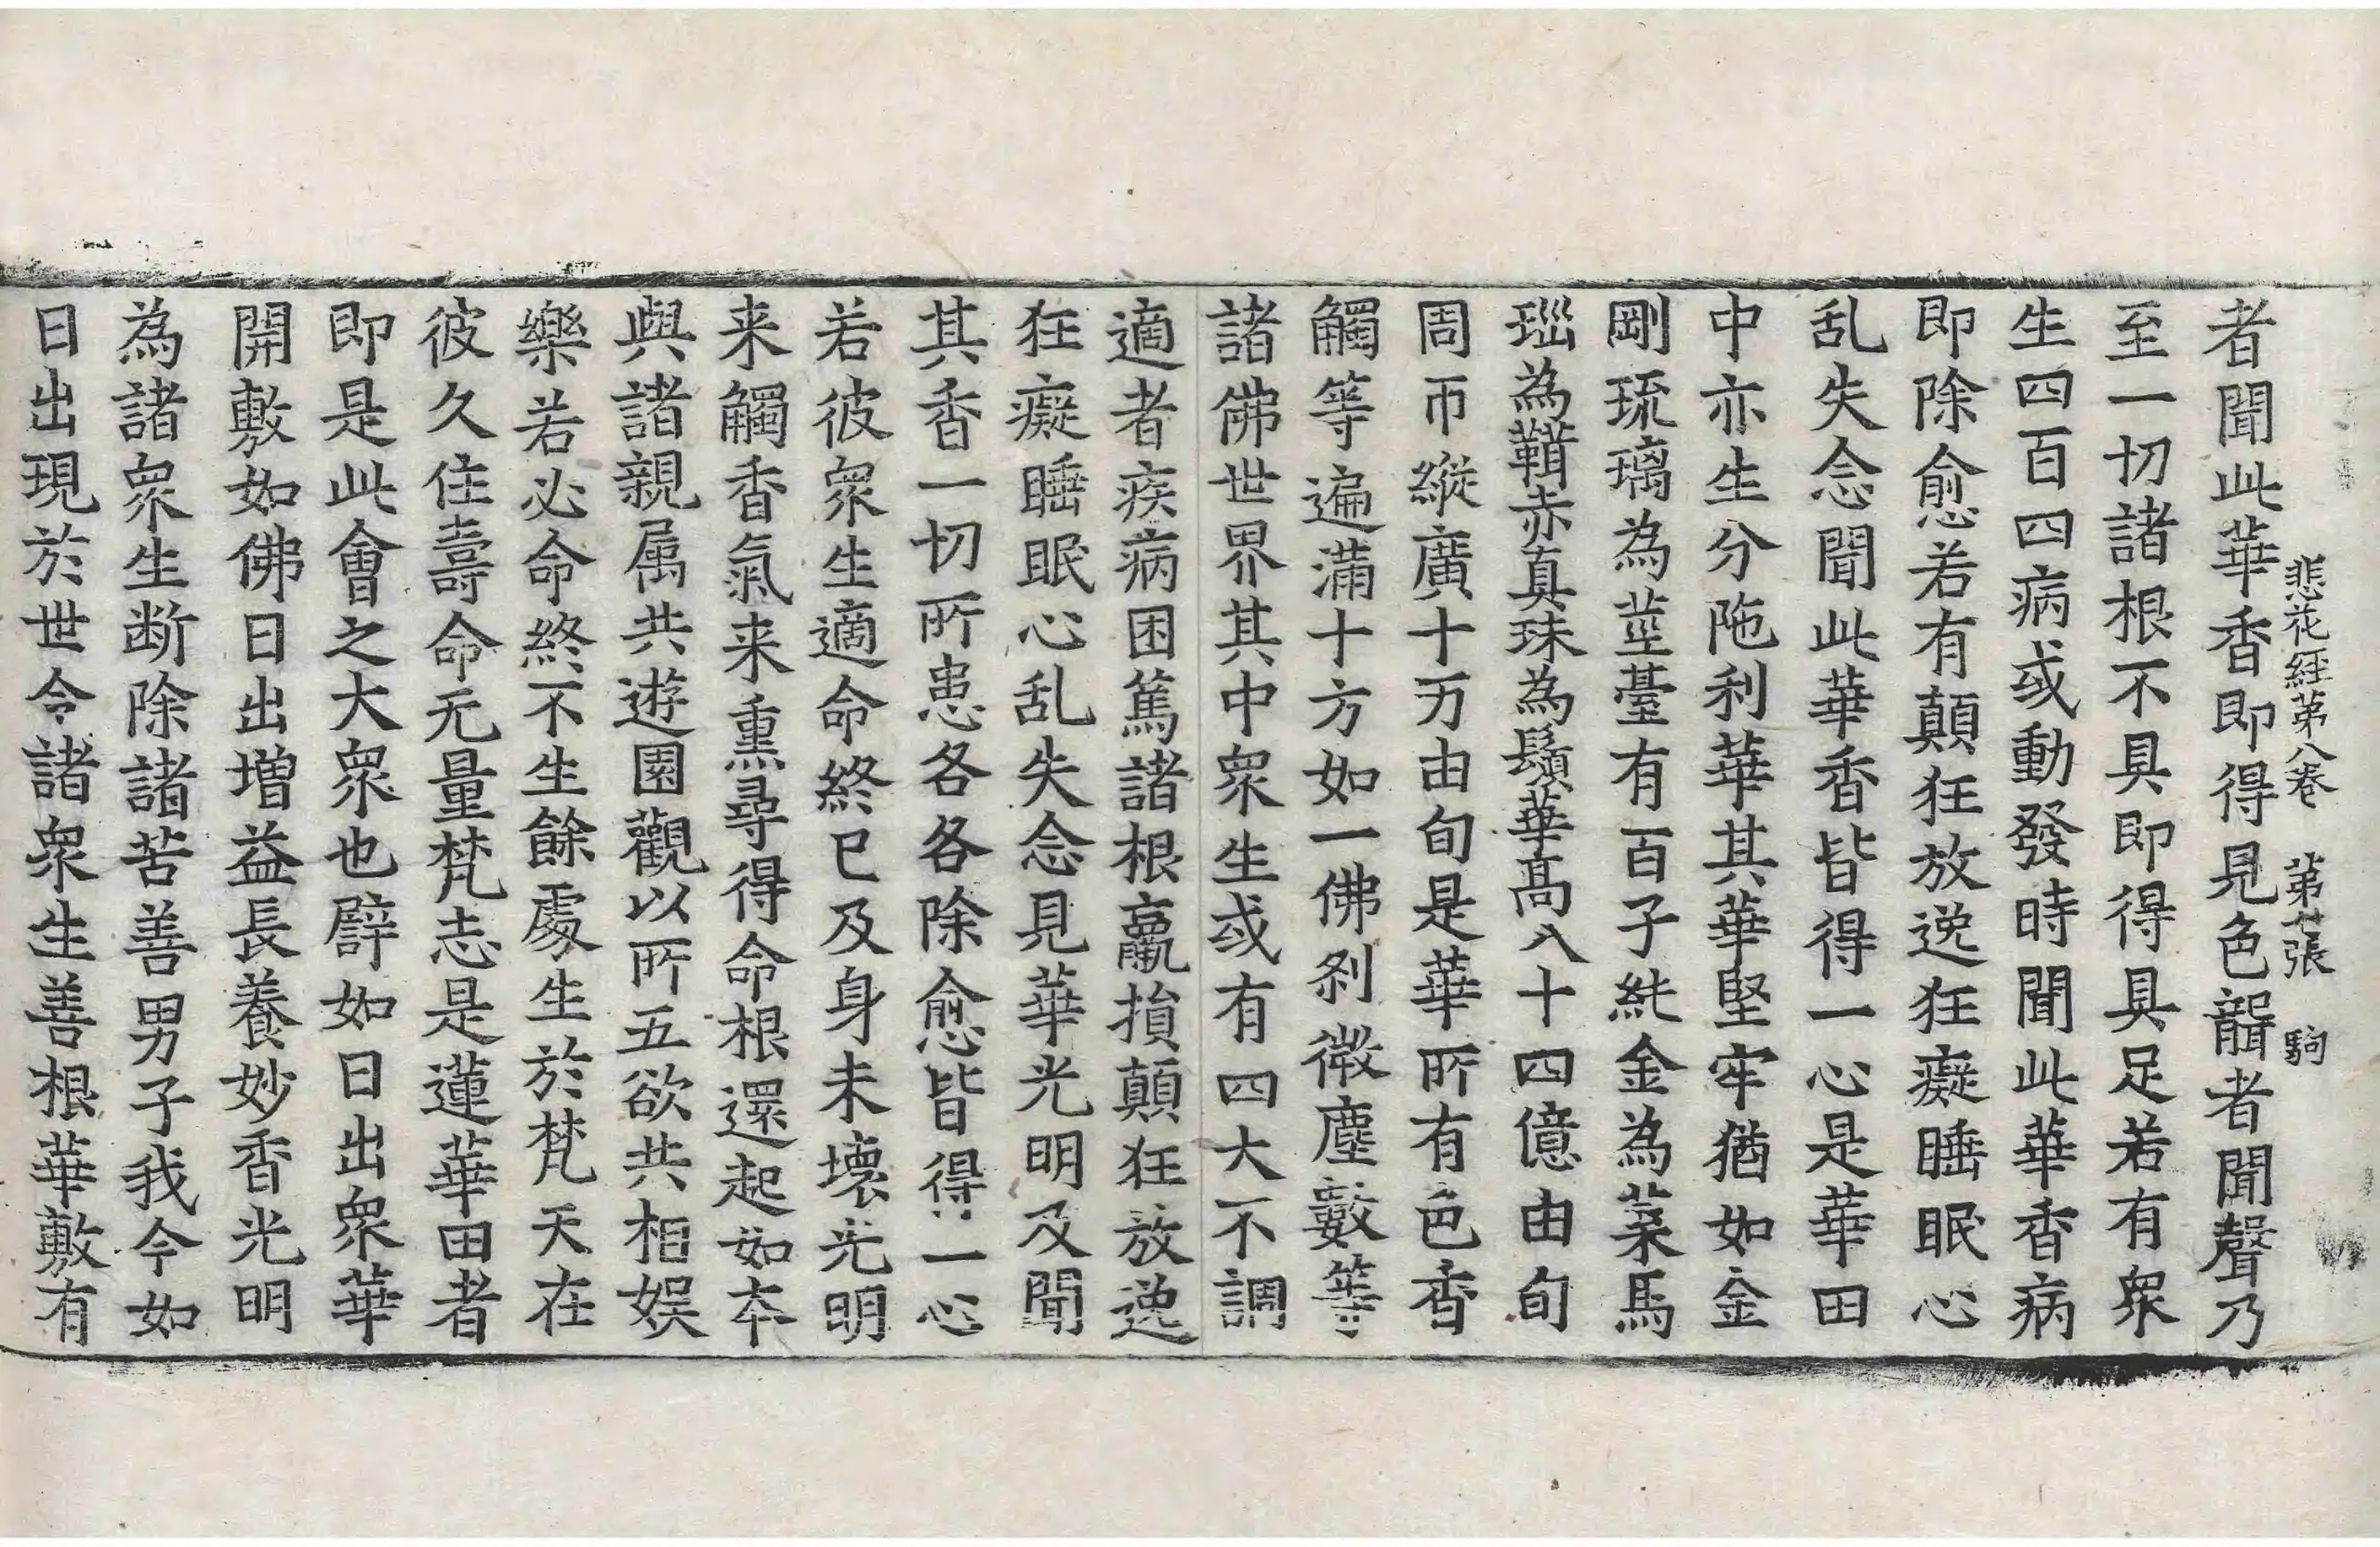 悲花経苐八巻　苐七張　駒
者聞此華香即得見色聾者聞聲乃
至一切諸根不具即得具足若有衆
生四百四病或動發時聞此華香病
即除愈若有顛狂放逸狂癡睡眠心
乱失念聞此華香皆得一心是華田
中亦生分陁利華其華堅牢猶如金
剛琉璃為莖臺有百子純金為葉馬
瑙為鞾赤真珠為鬚華髙八十四億由旬
周帀縱廣十万由旬是華所有色香
觸等遍滿十方如一佛剎微塵數等
諸佛世界其中衆生或有四大不調
適者疾病困篤諸根羸損顛狂放逸
狂癡睡眠心乱失念見華光明及聞
其香一切所患各各除愈皆得一心
若彼衆生適命終已及身未壞光明
来觸香氣来熏尋得命根還起如本
與諸親属共遊園觀以所五欲共相娱
樂若必命終不生餘處生於梵天在
彼久住壽命无量梵志是蓮華田者
即是此會之大衆也譬如日出衆華
開敷如佛日出增益長養妙香光明
為諸衆生断除諸苦善男子我今如
日出現於世令諸衆生善根華敷有